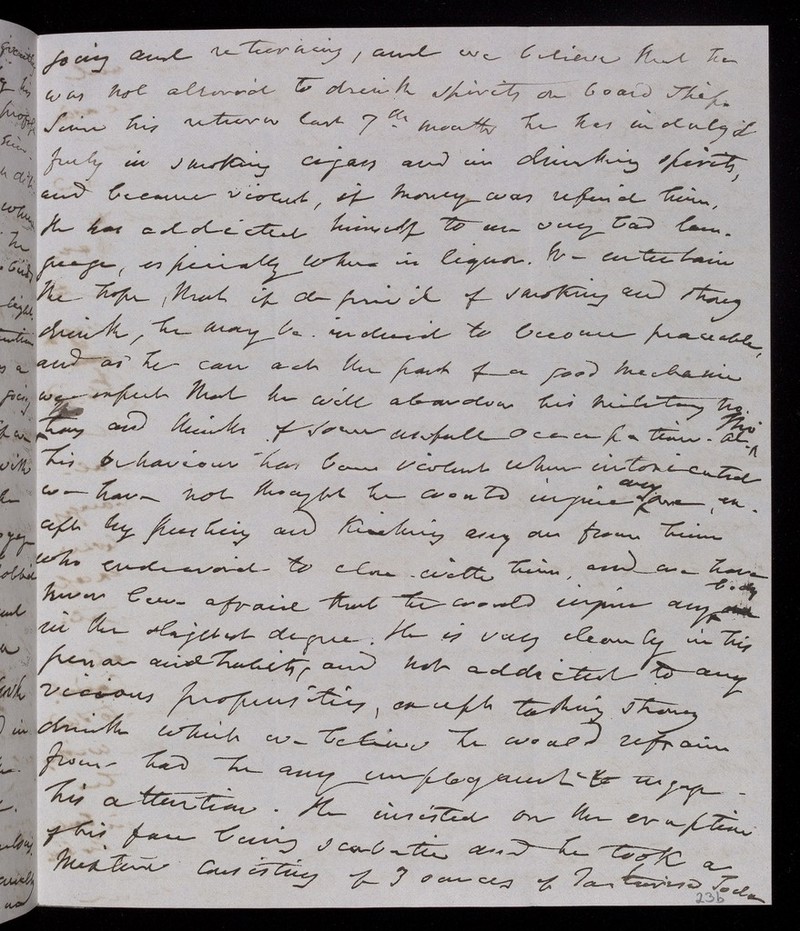 going and returning, and we believe that he
was not allowed to drink spirits on board ship.
Since his return last 7th month he has indulg'd
freely in smoking cigars and in drinking spirits,
and became violent, if money was refused him.
He has addicted himself to use very bad lan-
guage, especially when in liquor. We entertain
the hope, that if depriv'd of smoking and strong
drink, he may be induced to become peaceable,
and as he can act the part of a good mechanic
we expect that he will abandon his military no
tions and think of some usefull occupation. Al- tho'
his behaviour has been violent when intoxicated
we have not thought he would injure any one, ex-
cept by pushing and kicking any one from him
who endeavored to close with him, and we have
never been afraid that he would injure any body
in the slightest degree. He is very cleanly in his
person and habits, and not addicted to any
vicious propensities, except taking strong
drink which we believe he would refrain
from had he any employment to engage
his attention. He insisted on the eruption
of his face being scorbutic and he took a
Mixture consisting of 3 ounces of Soda
236